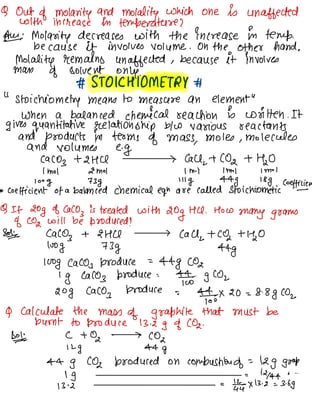 Q Out of molarity and molality which one is unaffected
with increase in temperature?
Ans: Molarity decreases with the increase in temp.
because it involves volume. On the other hand,
Molality remains unaffected, because it involves
mass of solvent only
# STOICHIOMETRY #
"Stoichiometry means to measure an element"
when a balanced chemical reaction is written. It
gives quantitative relationship b/w various reactants
and products in terms of mass, moles, molecules
and volumes e.g
CaCO3 + 2HCl → CaCl2 + CO2 + H2O
1mol 2mol 1mol 1mol 1mol
100g 73g 111g 44g 18g
• Coefficient of a balanced chemical eqn are called stoichiometic Coefficient
Q If 20g of CaCO3 is treated with 20g HCl. How many grams
of CO2 will be produced!
Sol: CaCO3 + 2HCl → CaCl2 + CO2 + H2O
100g 73g 44g
100g CaCO3 produce = 44g CO2
1g CaCO3 produce = 44/100 g CO2
20g CaCO3 produce = 44/100 x 20 = 8.8g CO2
Q Calculate the mass of graphite that must be
burnt to produce 13.2 g of CO2.
Sol: C + O2 → CO2
12g 44g
44 g CO2 produced on combustion of = 12g grap
1g = 12/44
13.2 = 12/44 x 13.2 = 3.6g